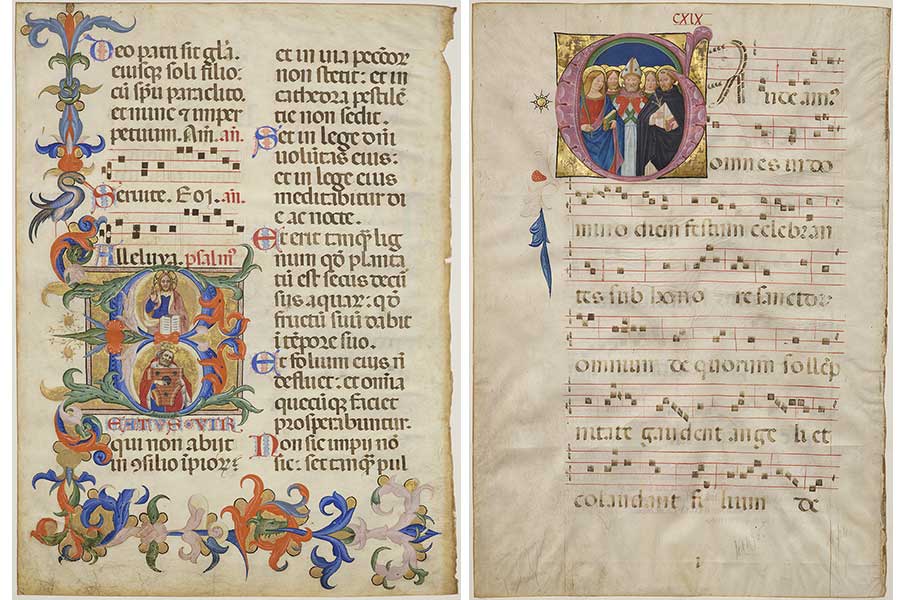 Deo patri sit glа̄.
eiusq̃ soli filio:
cū sp̄u paraclito.
et nunc ⁊ in per
petuum. Am̄. an̄.
Seruite. Eoꝝ. an̄.
Alleluya. psalmꝰ
BEATVS·VIR
qui non abijt
in ꝯsilio īpioꝝ:
et in uia peccoꝝ
non stetit: et in
cathedra pestilē
tie non sedit.
Set in lege dn̄i
uolūtas eius:
et in lege eius
meditabitur di
e ac nocte.
Et erit tanq̃ lig
num qd̄ planta
tū est secus decu͂
sus aquaꝝ: qd̄
fructū suū dabit
ī tēpore suo.
Et folium eius nō
defluet: et om̄ia
quecūq̃ faciet
prosperabuntur.
Non sic impii nō
sic: set tanq̃ pul
CXIX
Gaudeamꝰ
omnes in do
mino diem festum celebran
tes sub hono re sanctoꝝ
omnium de quorum sollēp
nitate gaudent ange li et
colaudant fi lium de